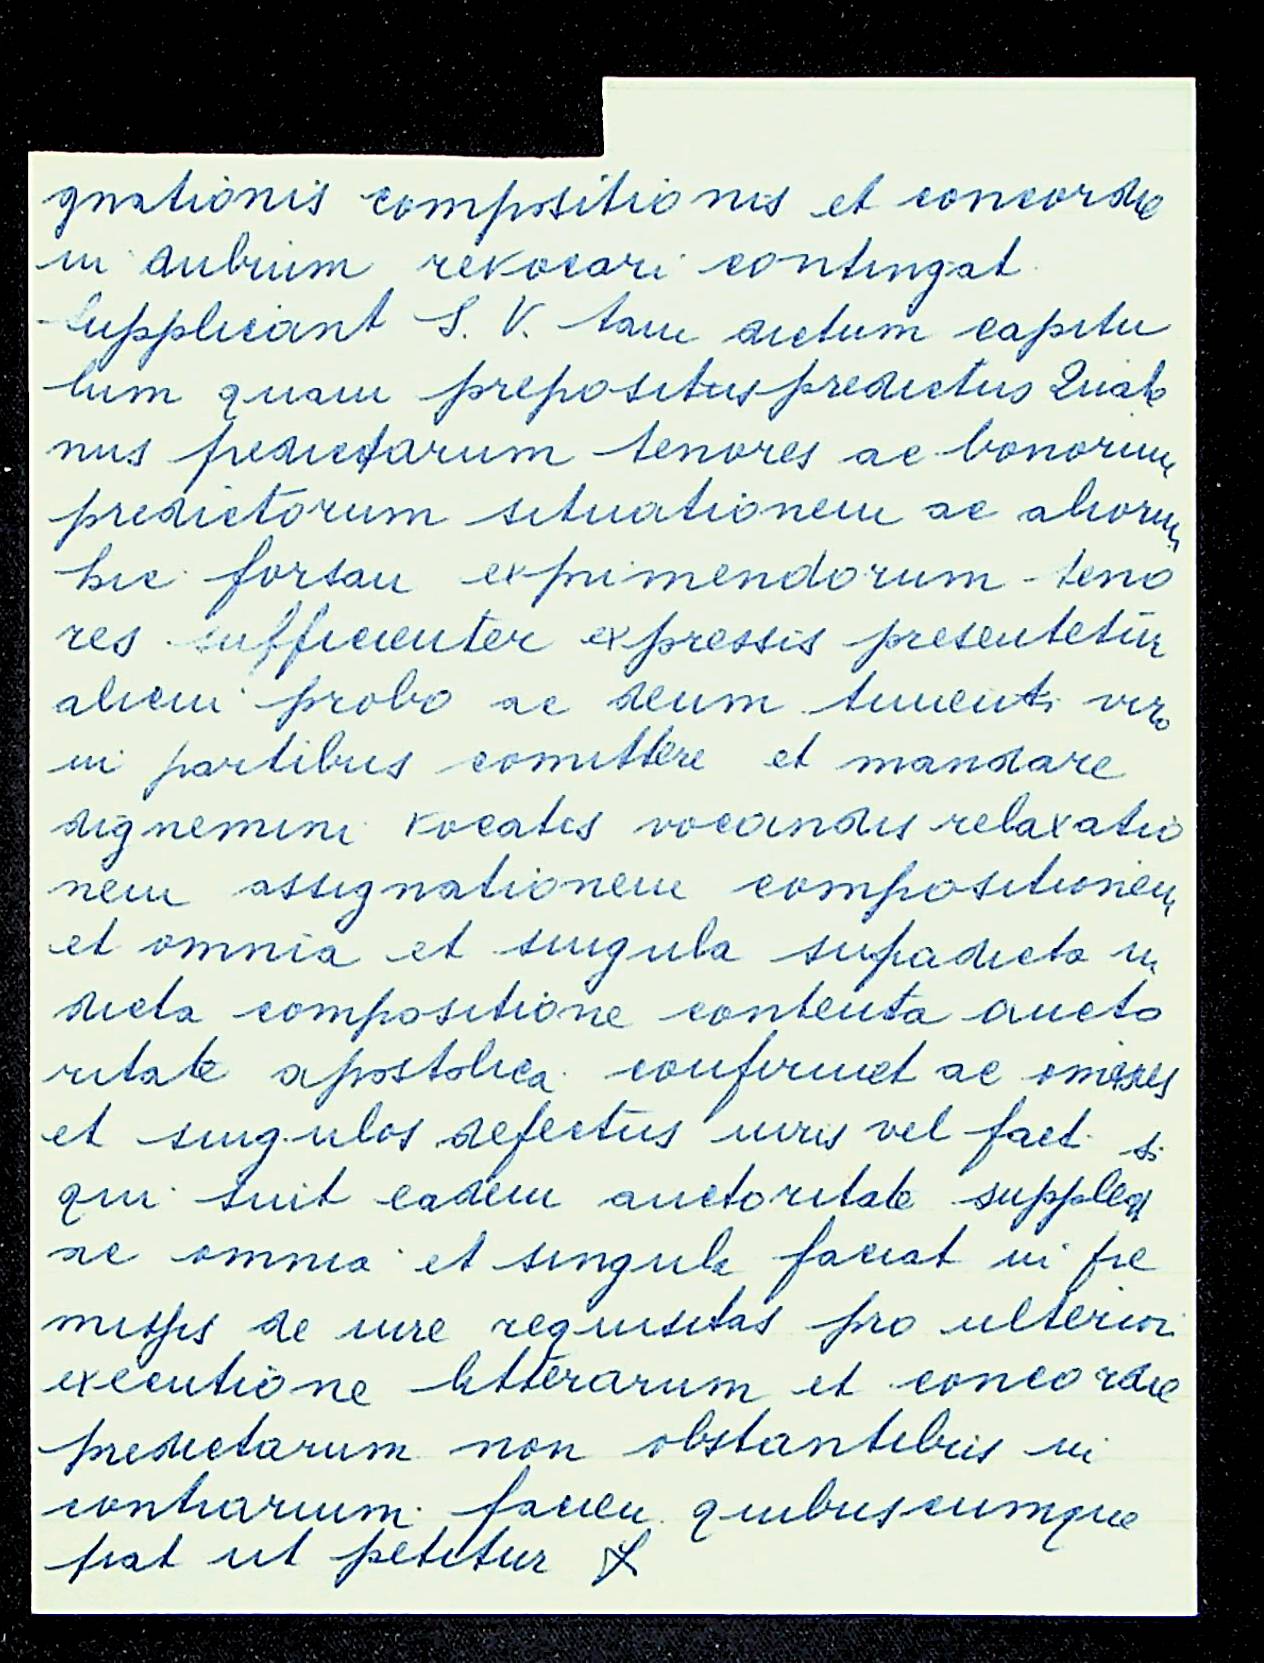 gnationis compositionis et concordie
in dubium revocari contingat
Supplicant S. V. tam dictum capitu
lum quam prepositus predictus Quate
nus predictarum tenores ac bonorum
predictorum situationem ac aliorum
hic forsan exprimendorum teno
res sufficienter expressis presentetur
alicui probo ac deum timenti viro
in partibus comittere et mandare
dignemini vocatis vocandis relaxatio
nem assignationem compositionem
et omnia et singula supadicta in
dicta compositione contenta aucto
ritate apostolica confirmet ac omnes
et singulos defectus iuris vel fact si
qui sint eadem auctoritate suppleat
ac omnia et singula faciat in pre
missis de iure requisitas pro ulteriori
executione litterarum et concordie
predictarum non obstantibus in
contrarium facien quibuscumque
fiat ut petitur